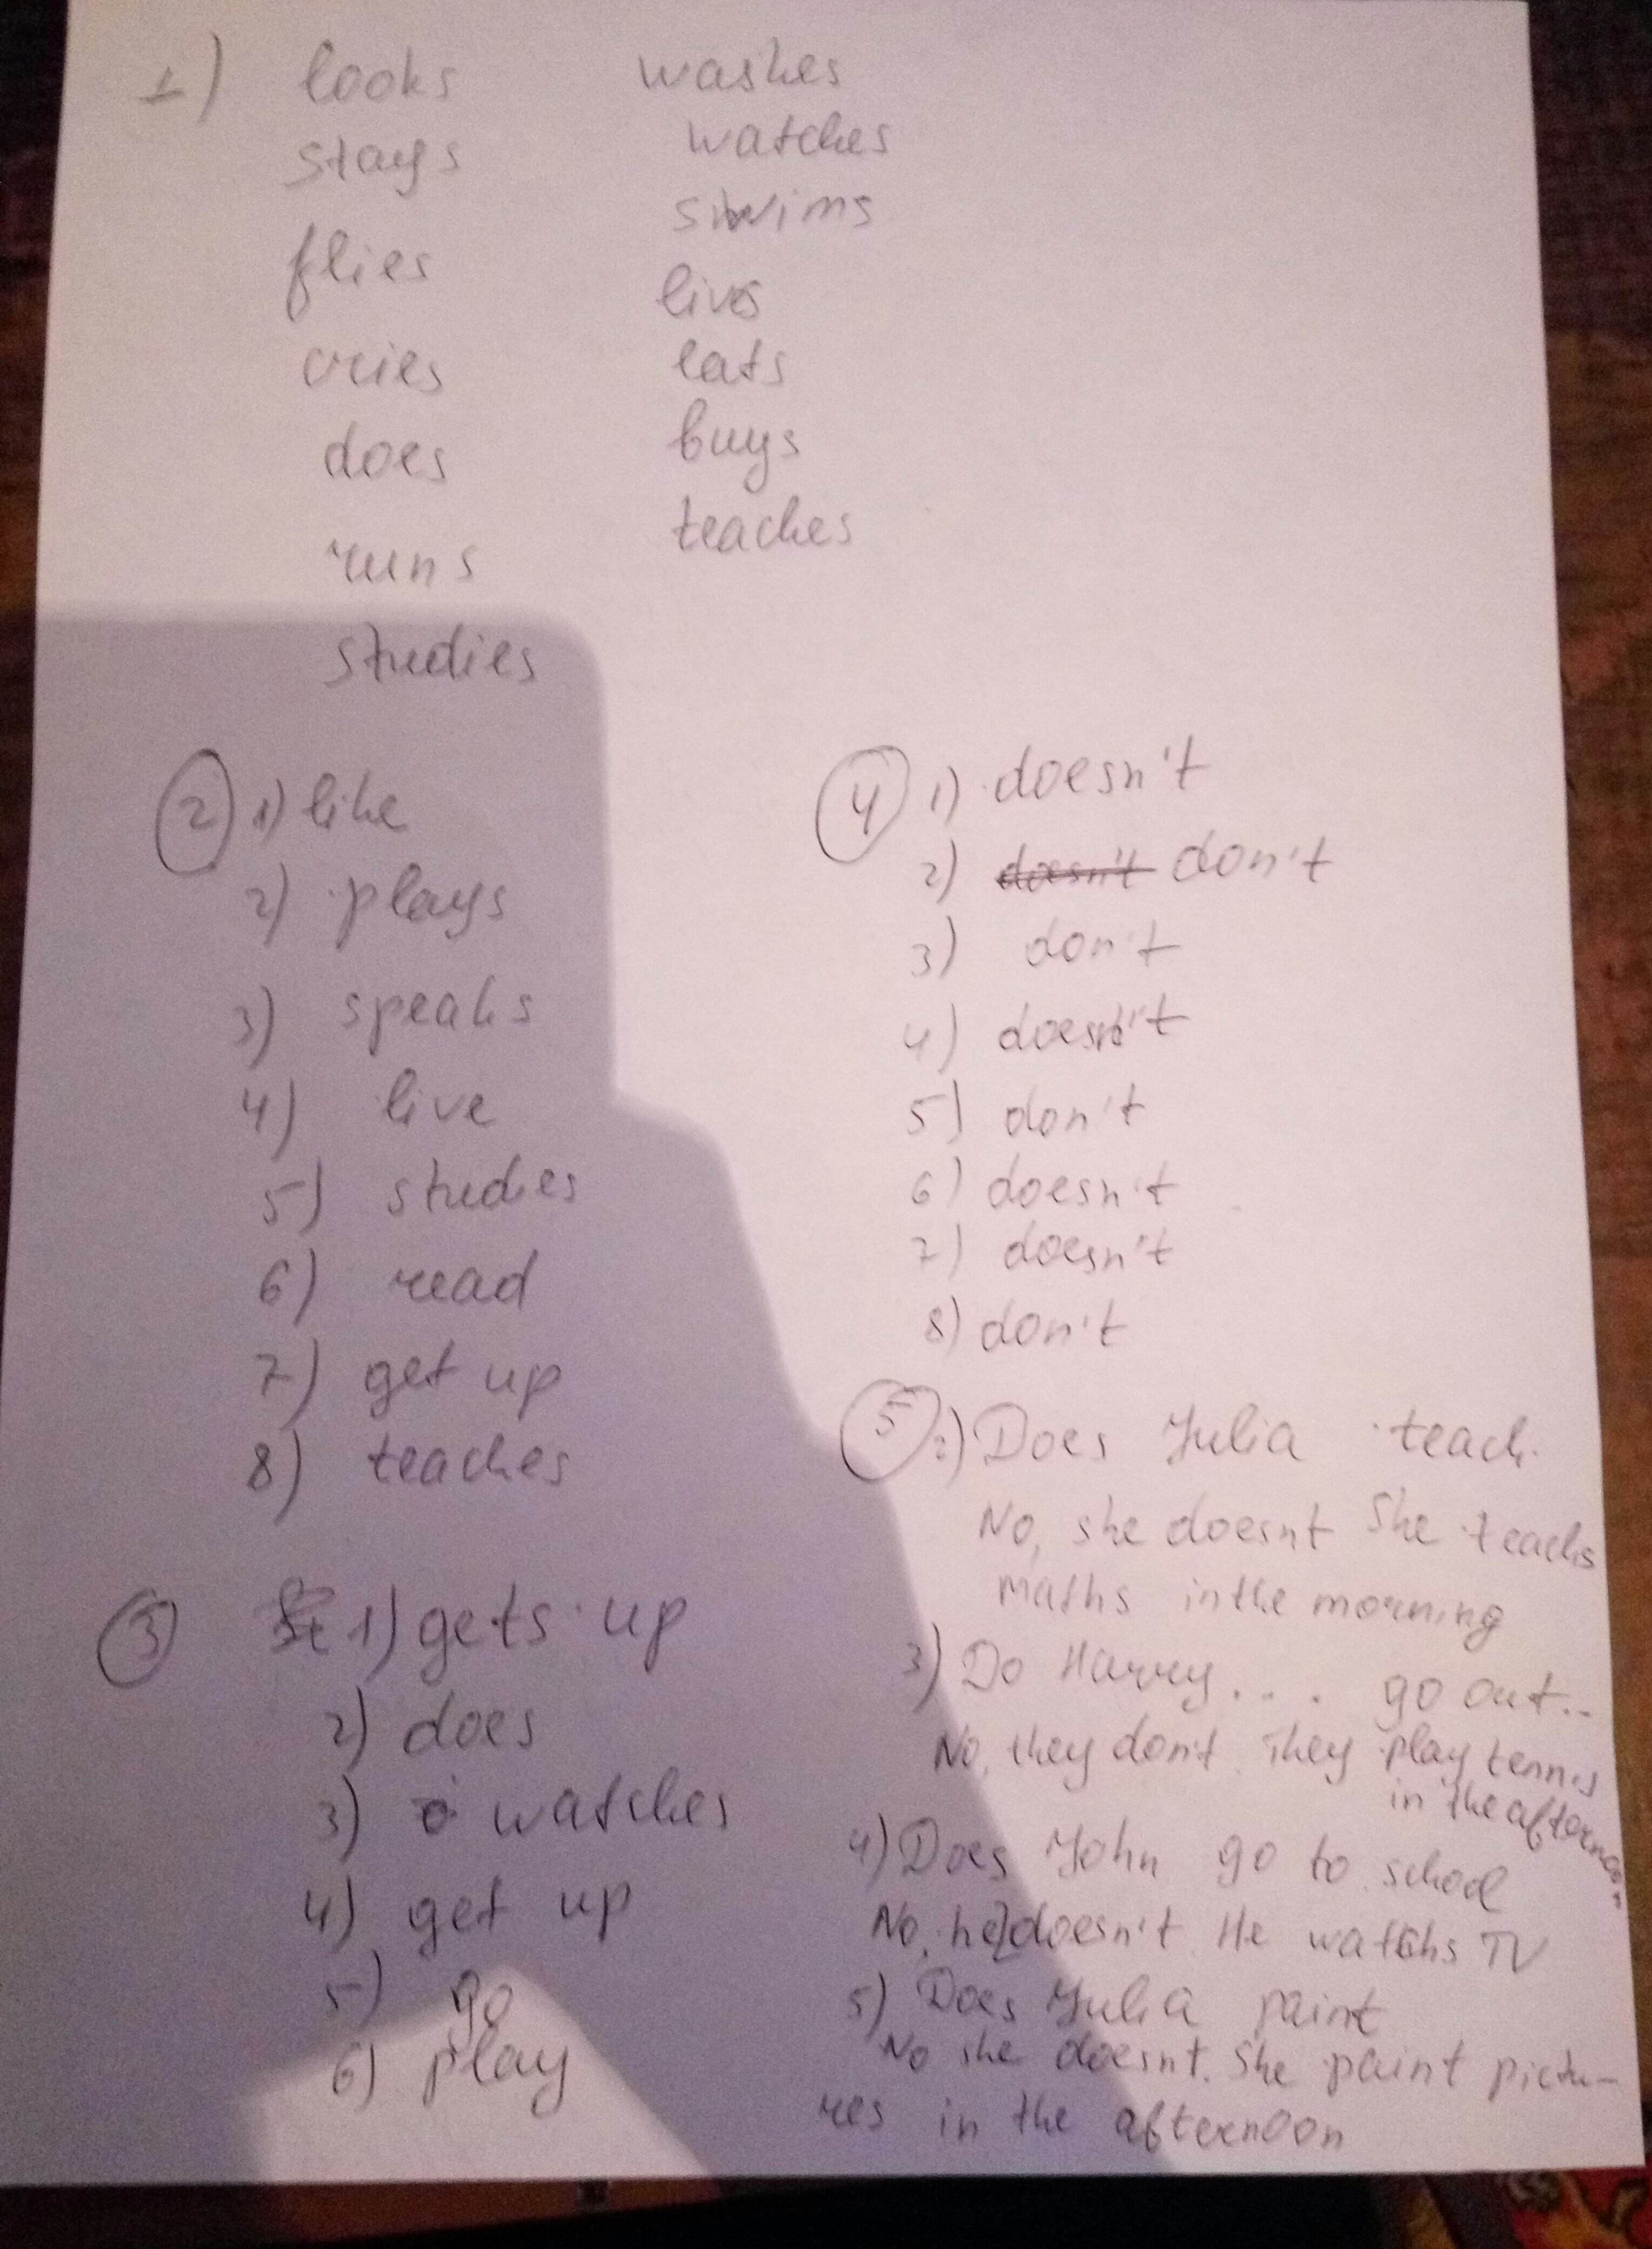 1) looks washes
stays watches
flies swims
cries lives
does eats
runs buys
studies teaches
2 1) like
2) plays
3) speaks
4) live
5) studies
6) read
7) get up
8) teaches
3 1) gets up
2) does
3) watches
4) get up
5) go
6) play
4 1) doesn't
2) doesn't don't
3) don't
4) doesn't
5) don't
6) doesn't
7) doesn't
8) don't
5 2) Does Julia teach.
No, she doesnt She teachs
maths in the morning
3) Do Harry.... go out..
No, they don't. They play tennis
in the afternoon
4) Does John go to school
No, he doesn't. He watchs TV
5) Does Julia paint
No she doesnt. She paint pictu-
res in the afternoon